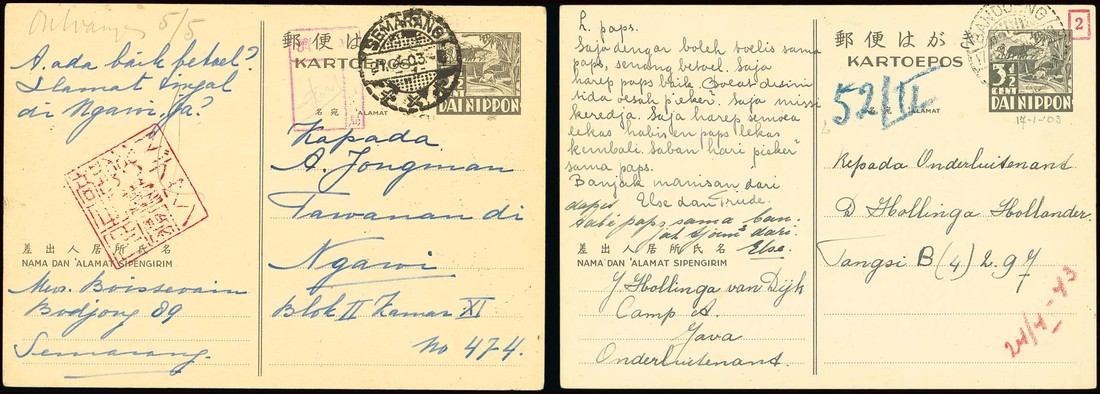 Ontvangen 5/5
A. ada baik betoel?
Slamat tingal
di Ngawi, ja?
差出人居所氏名
NAMA DAN ALAMAT SIPENGIRIM
Mevr. Boissevain
Bodjong 89
Semarang.
郵便は
KARTOEPOS
SEMARANG
DAI NIPPON
名宛 ALAMAT
Kapada
A. Jongman
Tawanan di
Ngawi
Blok II Kamar XI
No 474.
L. paps.
Saja dengar boleh toelis sama
paps, senang betoel. Saja
harep paps baik.
tida oesah pieker. Saja missi
keredja. Saja harep semoea
lekas habis en paps lekas
kembali. Saban hari pieker
sama paps.
Banjak manisan dari
Else dan Trude.
dapet
paps sama ban-
jak tjioem² dari
Else.
差出人居所氏名
NAMA DAN ALAMAT SIPENGIRIM
J. Hollinga van Dijk
Camp A.
Java
Onderluitenant.
郵便はがき
KARTOEPOS
BANDOENG
2
3½
CENT
DAI NIPPON
17-1-'03
52/II
名宛 ALAMAT
Kepada Onderluitenant
D Hollinga Hollander.
Tangsi B (4) 2.97
24/4-43